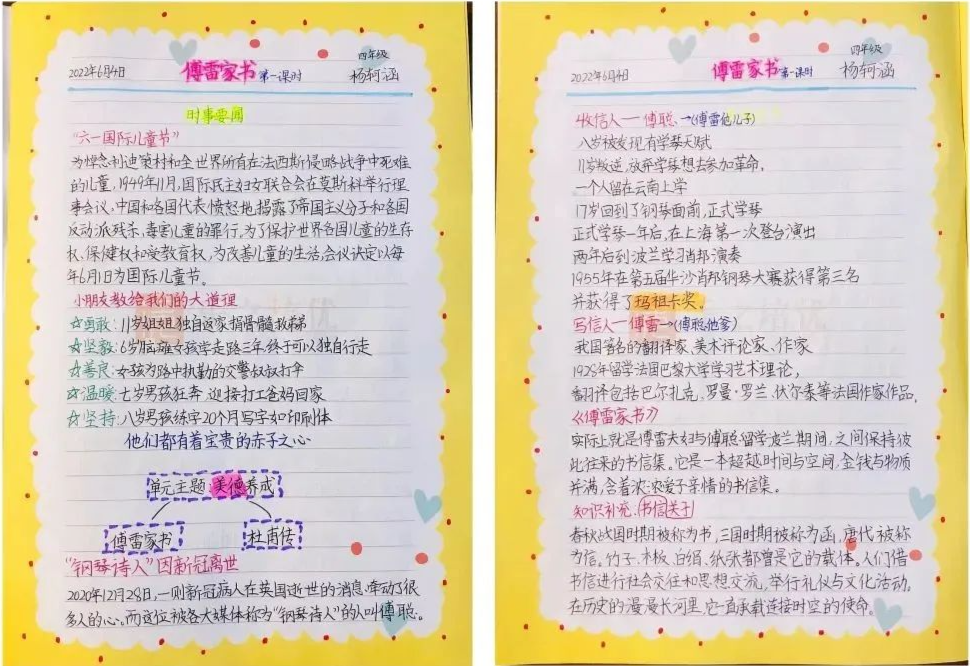 四年级
2022年6月4日 傅雷家书 第一课时 杨轲涵
时事要闻
"六一国际儿童节"
为悼念利迪策村和全世界所有在法西斯侵略战争中死难
的儿童,1949年11月,国际民主妇女联合会在莫斯科举行理
事会议,中国和各国代表愤怒地揭露了帝国主义分子和各国
反动派残杀、毒害儿童的罪行,为了保护世界各国儿童的生存
权、保健权和受教育权,为改善儿童的生活,会议决定以每
年6月1日为国际儿童节。
小朋友教给我们的大道理
☆勇敢:11岁姐姐独自返家捐骨髓救弟
☆坚毅:6岁脑瘫女孩学走路三年终于可以独自行走
☆善良:女孩为路中执勤的交警叔叔打伞
☆温暖:七岁男孩狂奔 迎接打工爸妈回家
☆坚持:八岁男孩练字20个月写字如印刷体
他们都有着宝贵的赤子之心
单元主题:美德养成
傅雷家书 杜甫传
"钢琴诗人"因新冠离世
2020年12月28日,一则新冠病人在英国逝世的消息,牵动了很
多人的心。而这位被各大媒体称为"钢琴诗人"的人叫傅聪。
四年级
2022年6月4日 傅雷家书 第一课时 杨轲涵
收信人——傅聪→(傅雷他儿子)
八岁被发现有学琴天赋
11岁叛逆,放弃学琴想去参加革命,
一个人留在云南上学
17岁回到了钢琴面前,正式学琴
正式学琴一年后,在上海第一次登台演出
两年后到波兰学习肖邦演奏
1955年在第五届华沙肖邦钢琴大赛获得第三名
并获得了玛祖卡奖。
写信人——傅雷→(傅聪他爹)
我国著名的翻译家、美术评论家、作家
1928年留学法国巴黎大学学习艺术理论,
翻译包括巴尔扎克、罗曼·罗兰、伏尔泰等法国作家作品,
《傅雷家书》
实际上就是傅雷夫妇与傅聪留学波兰期间,之间保持彼
此往来的书信集。它是一本超越时间与空间,金钱与物质
并满含着浓浓爱子亲情的书信集。
知识补充:书信关于
春秋战国时期被称为书,三国时期被称为函,唐代被称
为信。竹子、木板、白绢、纸张都曾是它的载体。人们借
书信进行社会交往和思想交流,举行礼仪与文化活动。
在历史的漫漫长河里,它一直承载连接时空的使命。